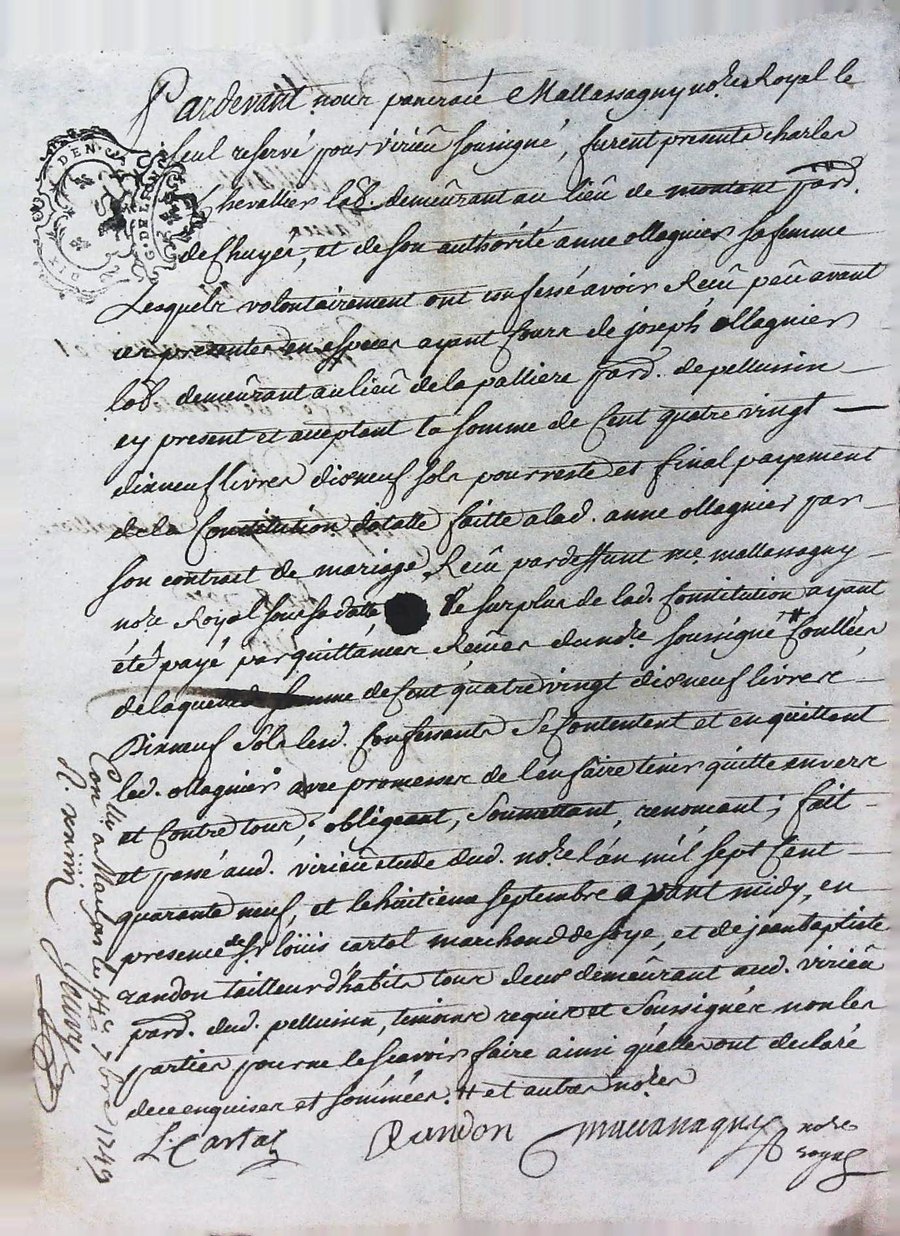 Pardevant nour pancrace Mallassagny no.re Royal le
seul reservé pour virieû soussigné, furent presents charles
Chevallier lab. demeûrant au lieû de montant parr.
de Chuyer, et de son authorité anne ollagnier sa femme
Lesquels volontairement ont confessé avoir Receû peû avant
ces presentes en especes ayant Cours de joseph ollagnier
lab. demeûrant au lieû de la palliere parr. de pellussin
cy present et acceptant la somme de Cent quatre vingt
dixneuf livres dixneuf sols pour reste et final payement
de la Constitution datalle faitte a lad. anne ollagnier par
son contrat de mariage Receû pardessunt me. mallassagny
no.re Royal sous sa datte le surplus de lad. Constitution ayant
été payé par quittances Receües dud no.re soussigné # Coullées
de laquelle somme de Cent quatre vingt dixneuf livres
Dixneuf sols lesd. Confessants se Contentent et en quittent
led. ollagnier avec promesses de l'en faire tenir quitte envers
et Contre tous; obligeant, soumettant, renonçant; fait
et passé aud. virieû etude dud. no.re l'an mil sept Cent
quarante neuf, et le huitieme septembre avant midy, en
presence de Sr loüis cartal marchand de soye, et de jean baptiste
randon tailleur d'habits tous deux demeûrant aud. virieû
parr. dud. pellussin, temoins requis et Soussignés non les
parties pour ne le sçavoir faire ainsi qu'elles ont declaré
de ce enquises et sommées. # et autres no.res
L. Cartal Randon Mallassagny no.re
royal
Con.lle a Maclas le 14e 7bre 1749
R. xviiij
DIX DEN.
G. DE LYON